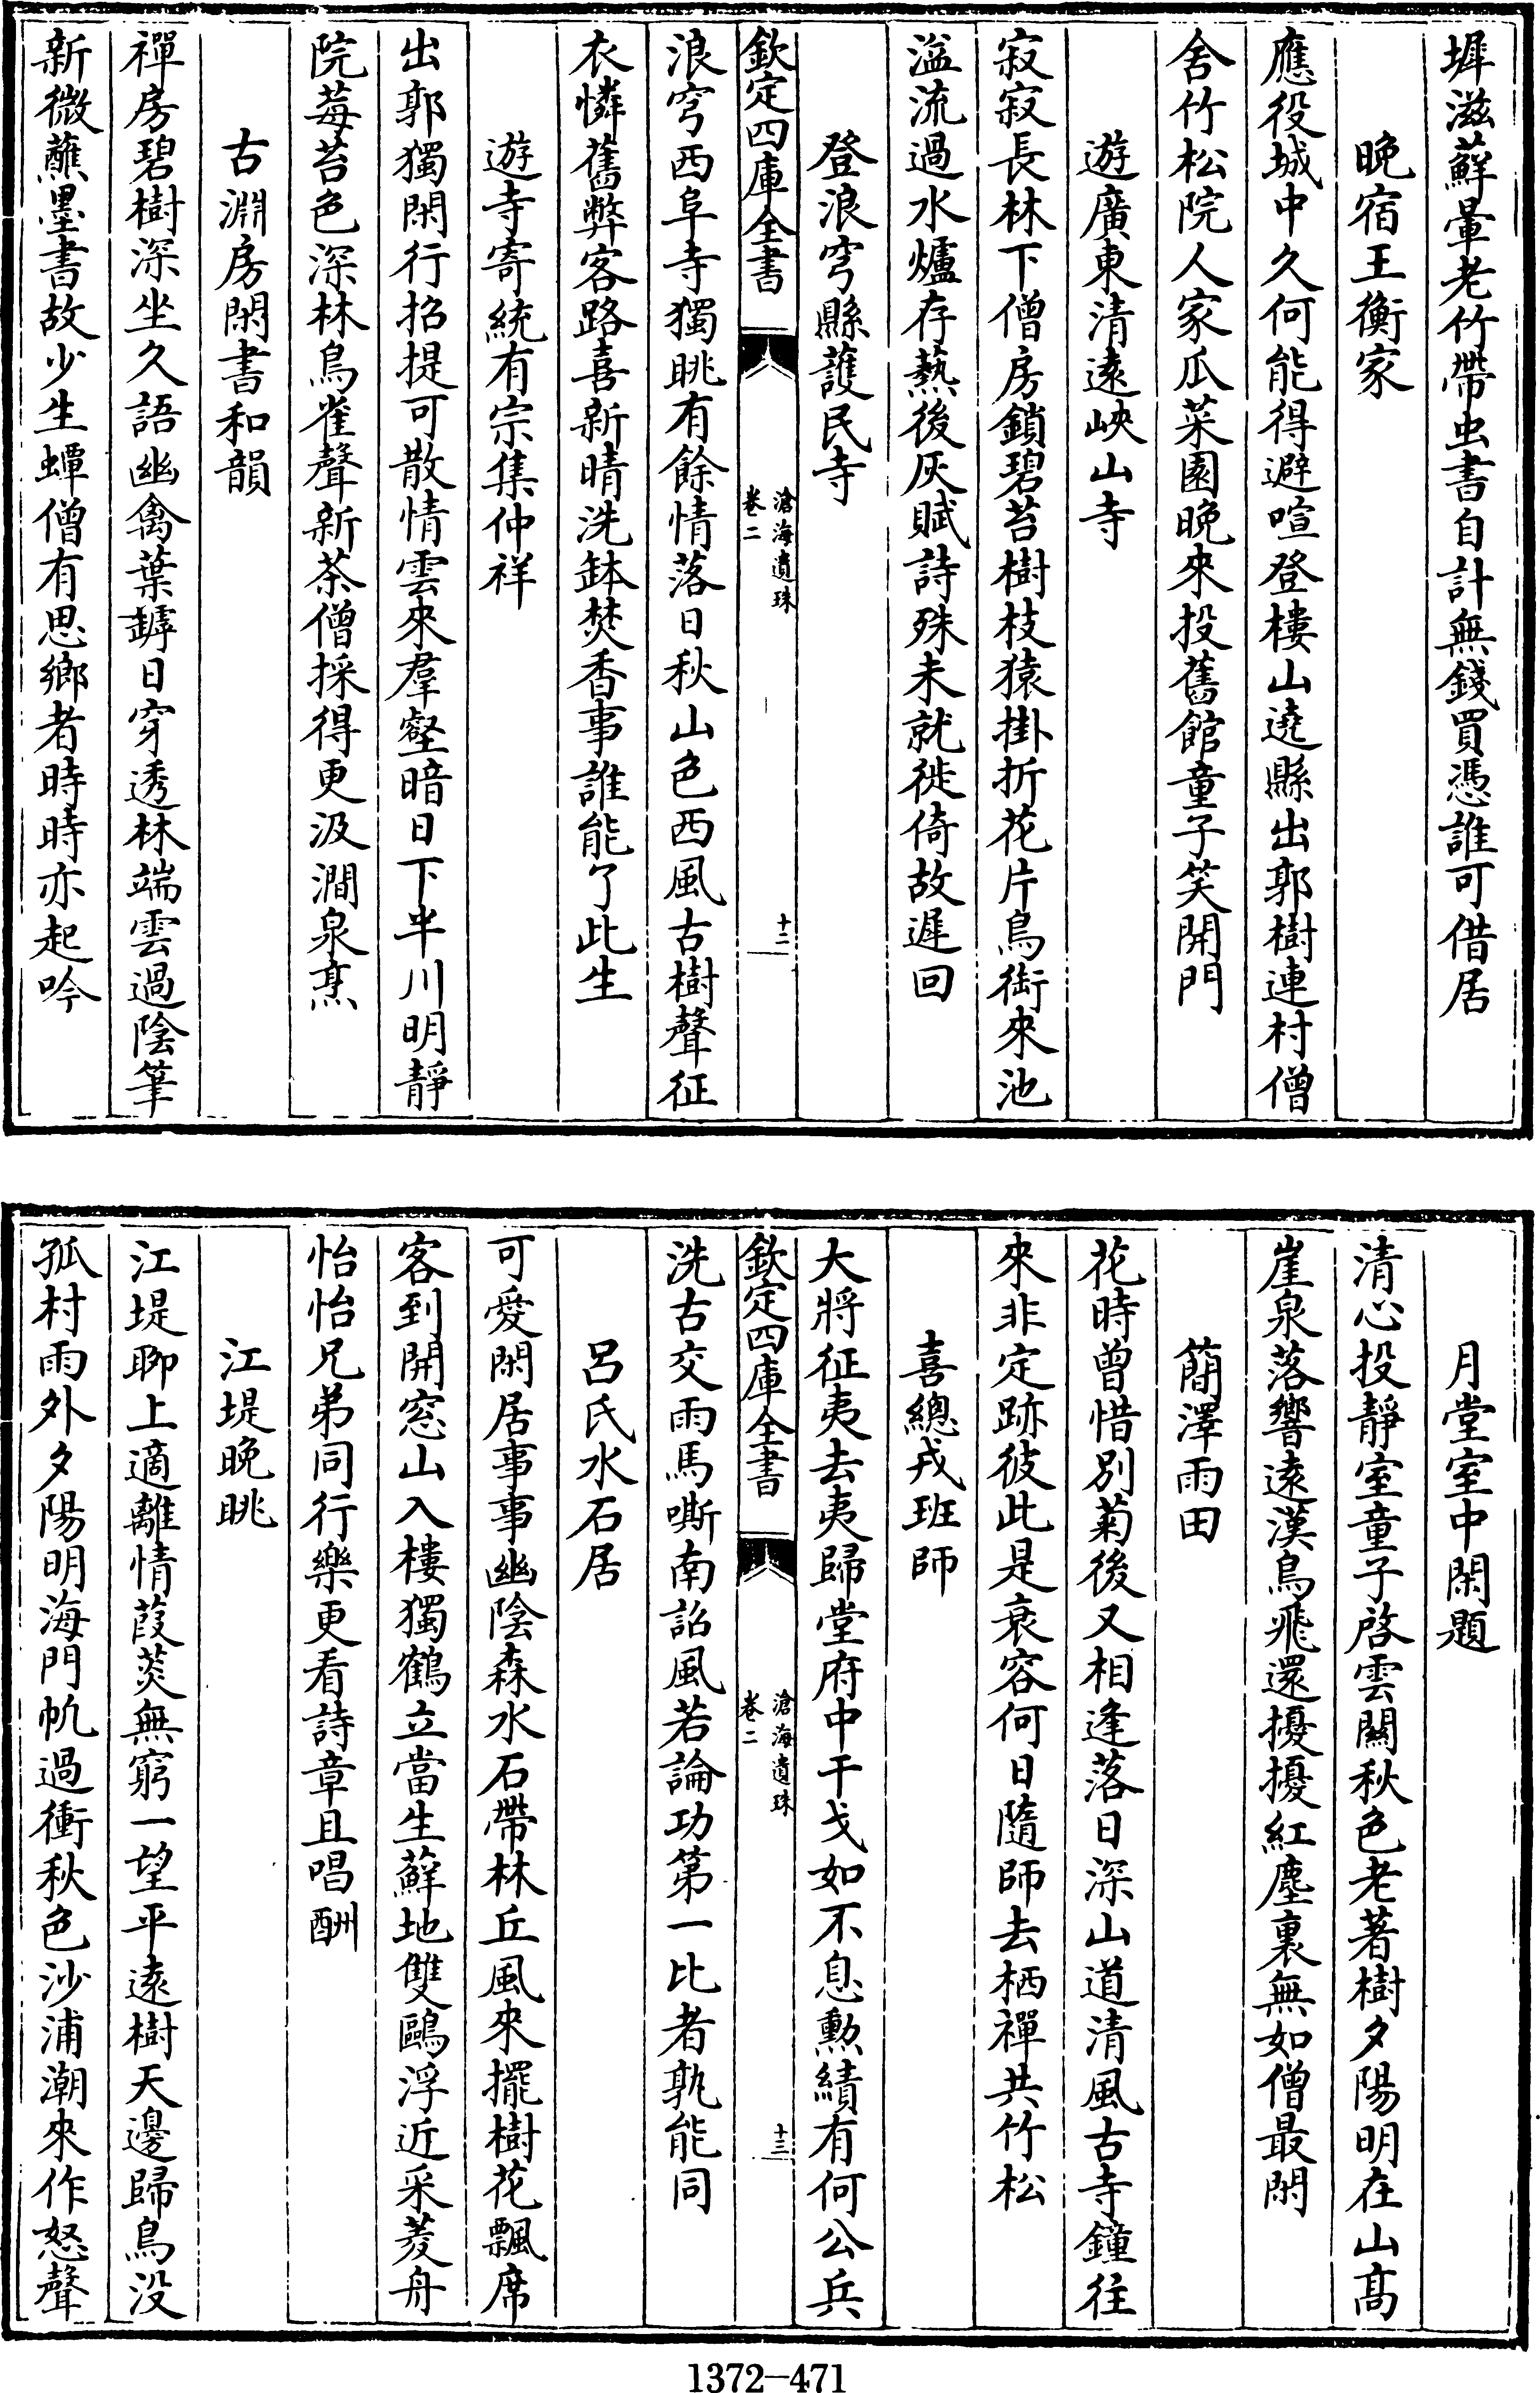 墀滋蘚暈老竹帶虫書自計無錢買憑誰可借居
晚宿王衡家
應役城中久何能得避喧登樓山遶縣出郭樹連村僧
舍竹松院人家瓜菜園晚來投舊館童子笑開門
遊廣東清遠峽山寺
寂寂長林下僧房鎖碧苔樹枝猿掛折花片鳥銜來池
溢流過水爐存熱後灰賦詩殊未就徙倚故遲回
登浪穹縣護民寺
欽定四庫全書
滄海遺珠
卷二
十二
浪穹西阜寺獨眺有餘情落日秋山色西風古樹聲征
衣憐舊弊客路喜新晴洗缽焚香事誰能了此生
遊寺寄統有宗集仲祥
出郭獨閑行招提可散情雲來羣壑暗日下半川明靜
院莓苔色深林鳥雀聲新茶僧採得更汲澗泉烹
古淵房閑書和韻
禪房碧樹深坐久語幽禽葉罅日穿透林端雲過陰筆
新微蘸墨書故少生蟫僧有思鄉者時時亦起吟
月堂室中閑題
清心投靜室童子啓雲關秋色老著樹夕陽明在山高
崖泉落響遠漢鳥飛還擾擾紅塵裏無如僧最閑
簡澤雨田
花時曾惜別菊後又相逢落日深山道清風古寺鐘往
來非定跡彼此是衰容何日隨師去栖禪共竹松
喜總戎班師
大將征夷去夷歸堂府中干戈如不息勲績有何公兵
欽定四庫全書
滄海遺珠
卷二
十三
洗古交雨馬嘶南詔風若論功第一比者孰能同
呂氏水石居
可愛閑居事事幽陰森水石帶林丘風來擺樹花飄席
客到開窓山入樓獨鶴立當生蘚地雙鷗浮近采菱舟
怡怡兄弟同行樂更看詩章且唱酬
江堤晚眺
江堤聊上適離情葭菼無窮一望平遠樹天邊歸鳥没
孤村雨外夕陽明海門帆過衝秋色沙浦潮來作怒聲
1372-471